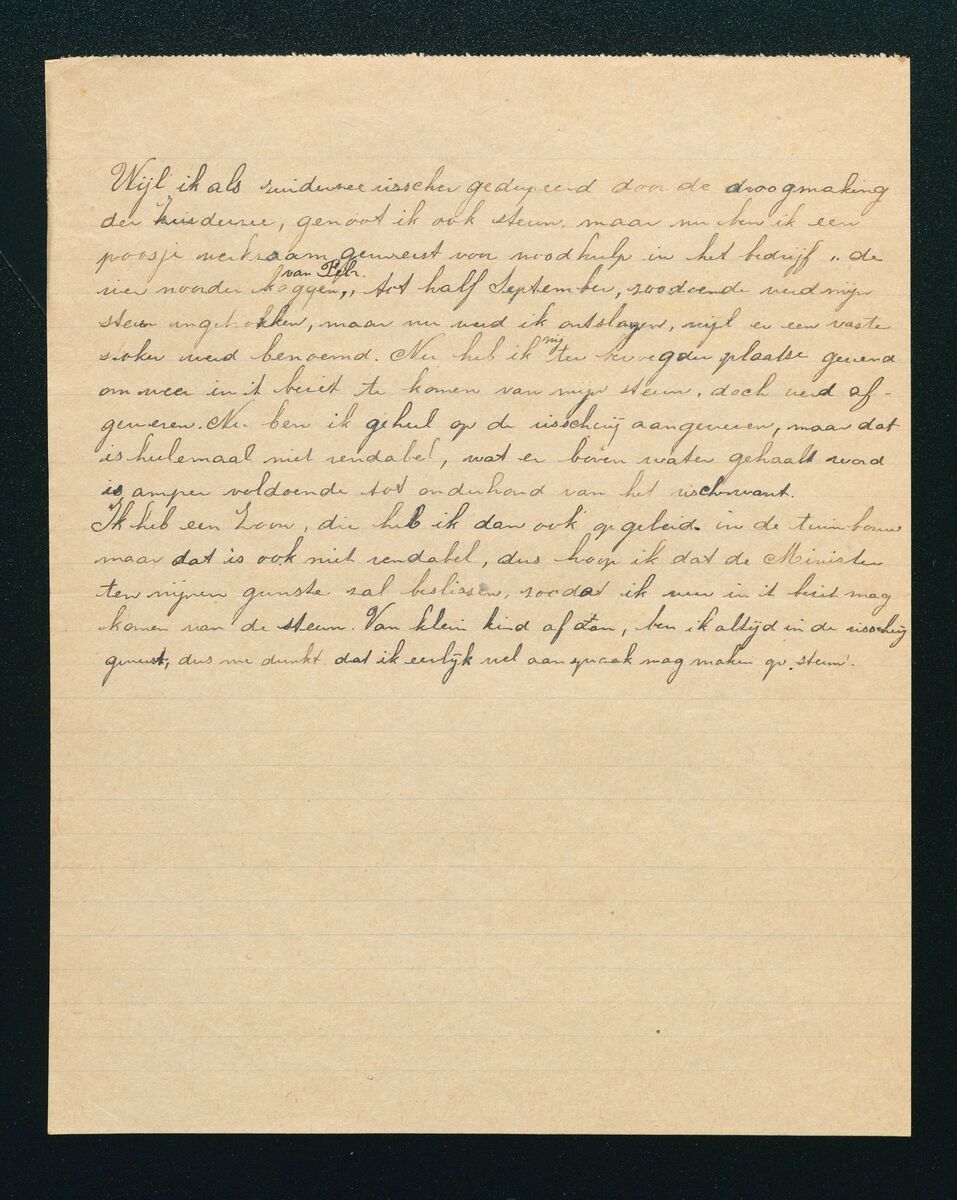 Wijl ik als zuiderzee visscher gedupeerd door de droogmaking
der Zuiderzee, genoot ik ook steun, maar nu ben ik een
poosje werkzaam geweest voor noodhulp in het bedrijf „de
van Febr.
vier noorder koggen„ tot half September, zoodoende werd mijn
steun ingetrokken, maar nu werd ik ontslagen, wijl er een vaste
stoker werd benoemd. Nu heb ik mij ter bevoegder plaatse gewend
om weer in 't bezit te komen van mijn steun, doch werd af-
gewezen. Nu ben ik geheel op de visscherij aangewezen, maar dat
is heelemaal niet rendabel, wat er boven water gehaalt word
is amper voldoende tot onderhoud van het vischwant.
Ik heb een Zoon, die heb ik dan ook opgeleid in de tuinbouw
maar dat is ook niet rendabel, dus hoop ik dat de Minister
ten mijnen gunste zal beslissen, zoodat ik weer in 't bezit mag
komen van de steun. Van klein kind af aan, ben ik altijd in de visscherij
geweest, dus me dunkt dat ik eerlijk wel aanspraak mag maken op steun.